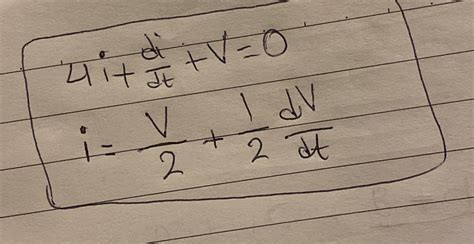 4i + di/dt + V = 0
i = V/2 + 1/2 dV/dt